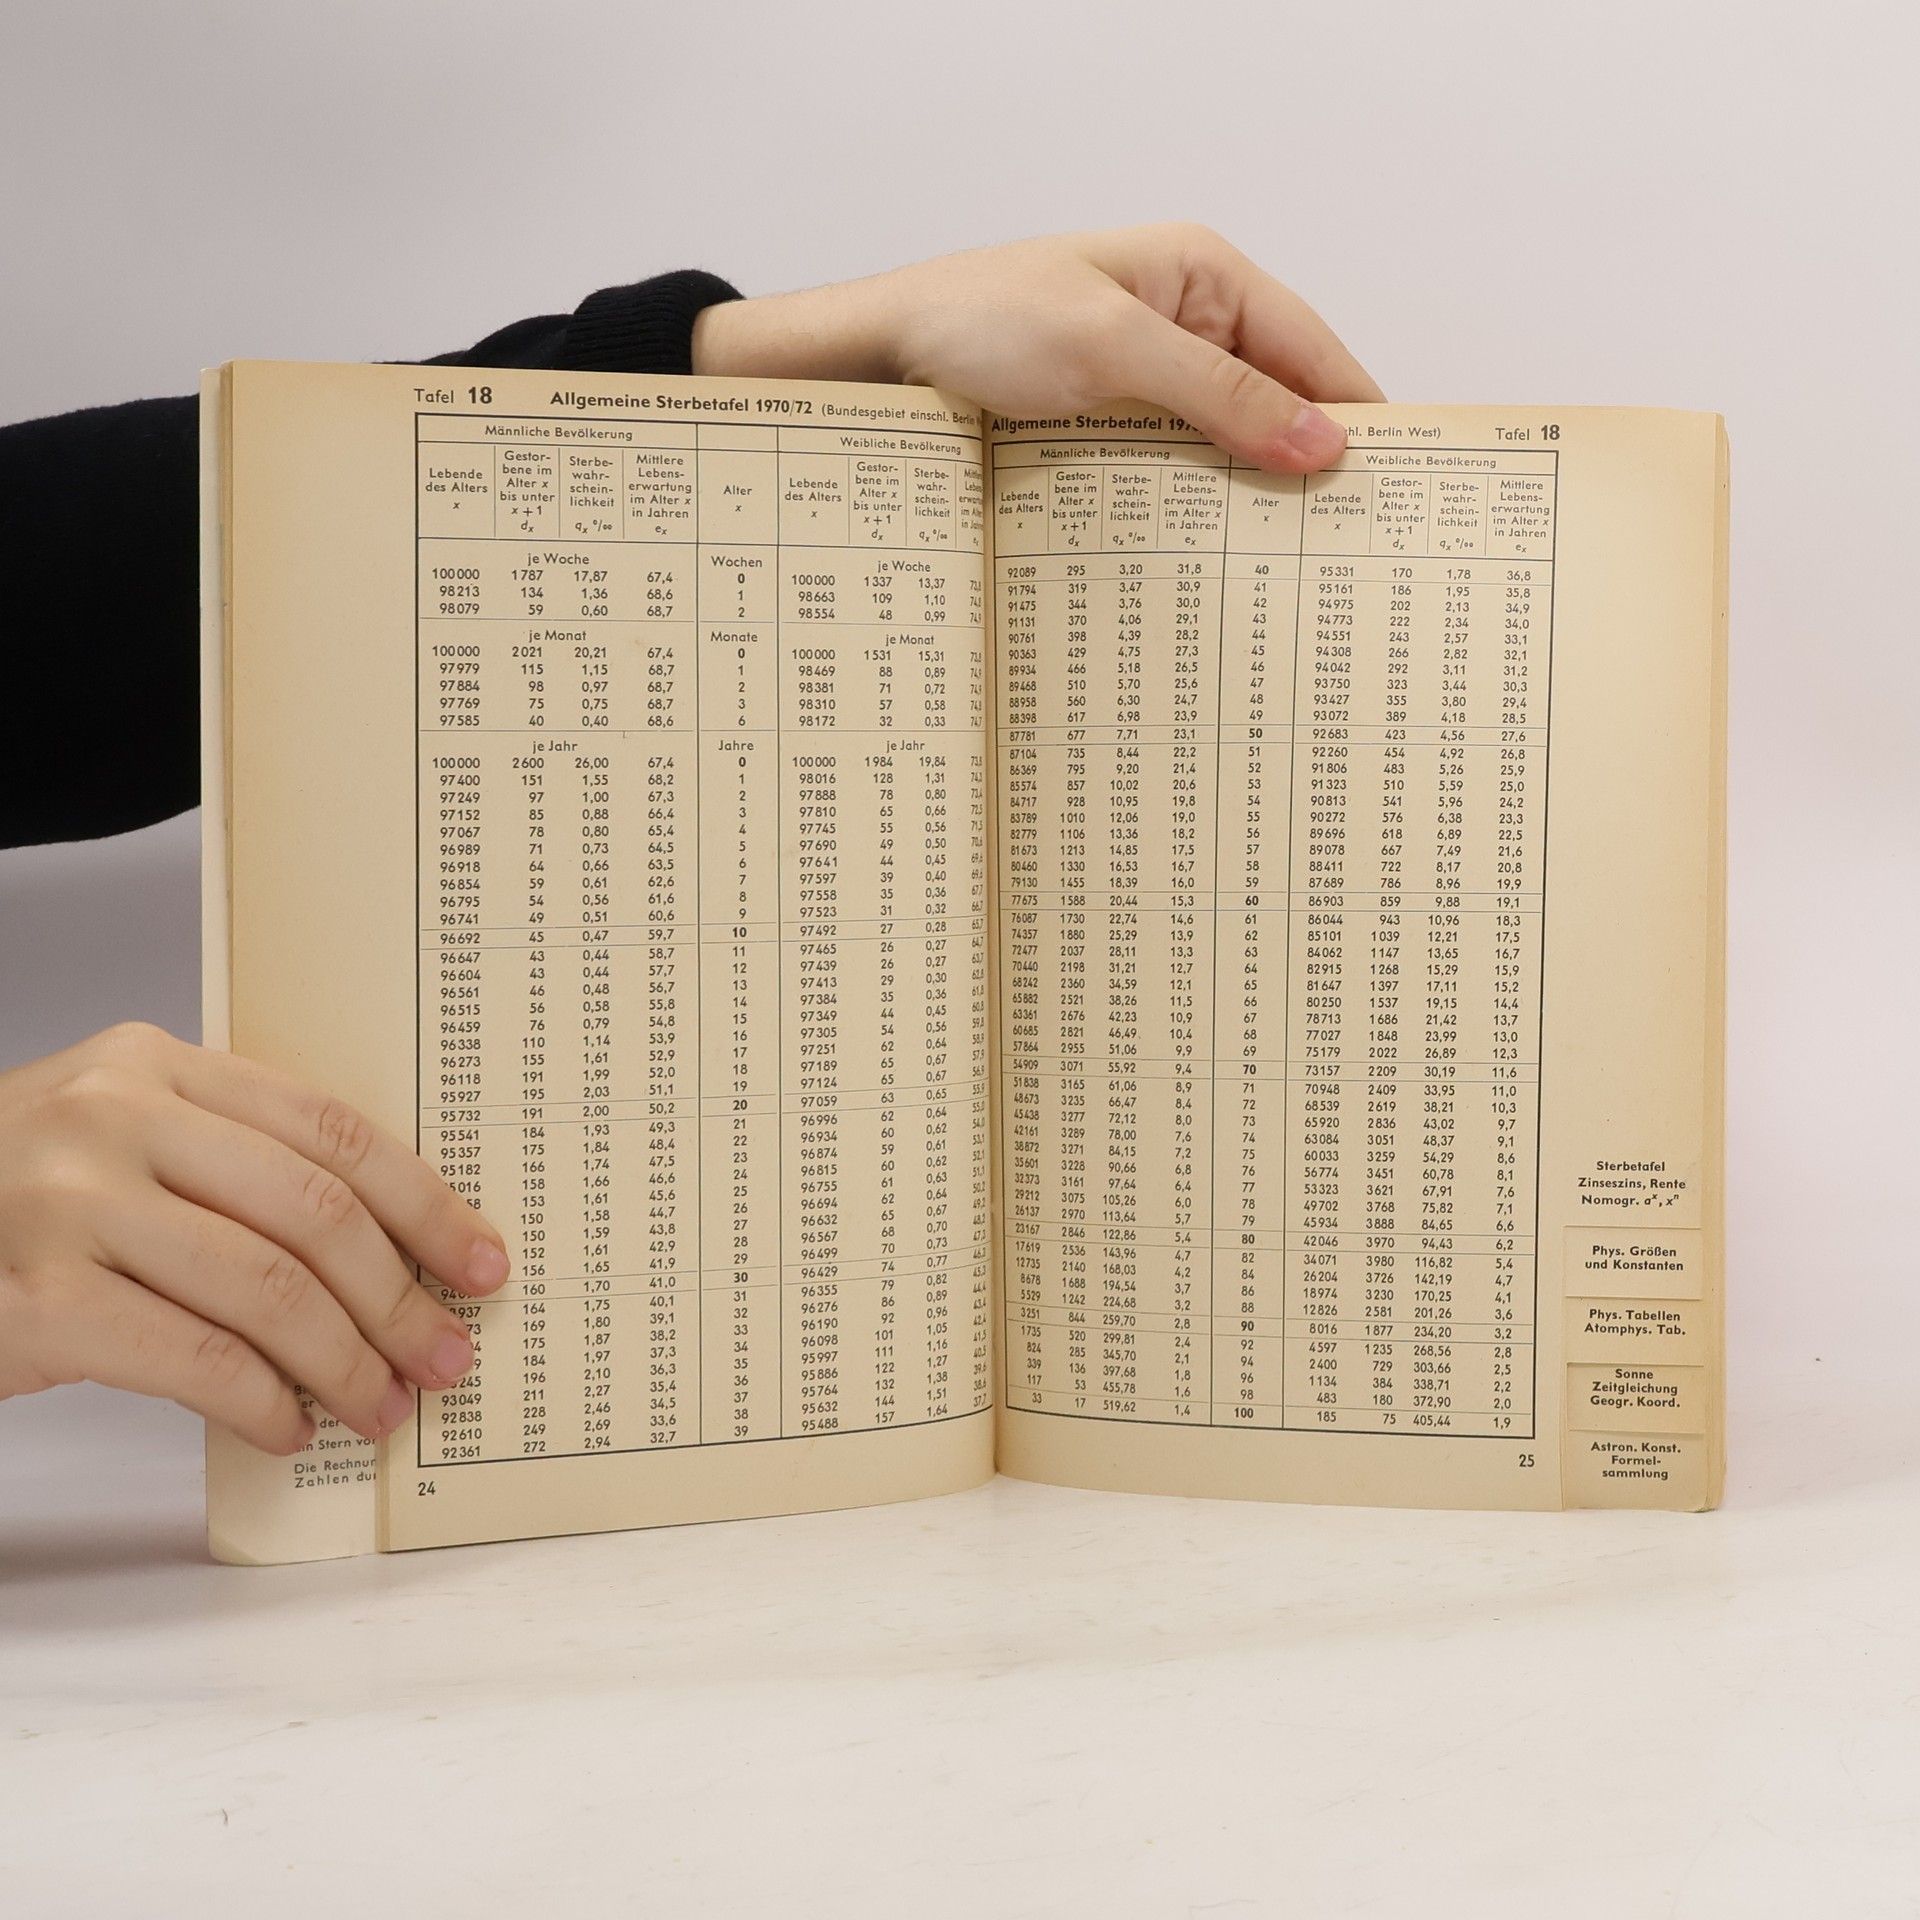 Tafel 18 Allgemeine Sterbetafel 1970/72 (Bundesgebiet einschl. Berlin
Männliche Bevölkerung Weibliche Bevölkerung
Lebende des Alters x
Gestor-
bene im
Alter x
bis unter
x + 1
dx
Sterbe-
wahr-
schein-
lichkeit
qx ‰
Mittlere
Lebens-
erwartung
im Alter x
in Jahren
ex
Alter
x
Lebende
des Alters
x
Gestor-
bene im
Alter x
bis unter
x + 1
dx
Sterbe-
wahr-
schein-
lichkeit
qx ‰
je Woche Wochen je Woche
100000 1787 17,87 67,4 0 100000 1337 13,37
98213 134 1,36 68,6 1 98663 109 1,10
98079 59 0,60 68,7 2 98554 48 0,99
je Monat Monate je Monat
100000 2021 20,21 67,4 0 100000 1531 15,31
97979 115 1,15 68,7 1 98469 88 0,89
97884 98 0,97 68,7 2 98381 71 0,72
97769 75 0,75 68,7 3 98310 57 0,58
97585 40 0,40 68,6 6 98172 32 0,33
je Jahr Jahre je Jahr
100000 2600 26,00 67,4 0 100000 1984 19,84
97400 151 1,55 68,2 1 98016 128 1,31
97249 97 1,00 67,3 2 97888 78 0,80
97152 85 0,88 66,4 3 97810 65 0,66
97067 78 0,80 65,4 4 97745 55 0,56
96989 71 0,73 64,5 5 97690 49 0,50
96918 64 0,66 63,5 6 97641 44 0,45
96854 59 0,61 62,6 7 97597 39 0,40
96795 54 0,56 61,6 8 97558 35 0,36
96741 49 0,51 60,6 9 97523 31 0,32
96692 45 0,47 59,7 10 97492 27 0,28
96647 43 0,44 58,7 11 97465 26 0,27
96604 43 0,44 57,7 12 97439 26 0,27
96561 46 0,48 56,7 13 97413 29 0,30
96515 56 0,58 55,8 14 97384 35 0,36
96459 76 0,79 54,8 15 97349 44 0,45
96338 110 1,14 53,9 16 97305 54 0,56
96273 155 1,61 52,9 17 97251 62 0,64
96118 191 1,99 52,0 18 97189 65 0,67
95927 195 2,03 51,1 19 97124 65 0,67
95732 191 2,00 50,2 20 97059 63 0,65
95541 184 1,93 49,3 21 96996 62 0,64
95357 175 1,84 48,4 22 96934 60 0,62
95182 166 1,74 47,5 23 96874 59 0,61
5016 158 1,66 46,6 24 96815 60 0,62
153 1,61 45,6 25 96755 61 0,63
150 1,58 44,7 26 96694 62 0,64
150 1,59 43,8 27 96632 65 0,67
152 1,61 42,9 28 96567 68 0,70
156 1,65 41,9 29 96499 70 0,73
160 1,70 41,0 30 96429 74 0,77
937 164 1,75 40,1 31 96355 79 0,82
73 169 1,80 39,1 32 96276 86 0,89
175 1,87 38,2 33 96190 92 0,96
184 1,97 37,3 34 96098 101 1,05
245 196 2,10 36,3 35 95997 111 1,16
93049 211 2,27 35,4 36 95886 122 1,27
92838 228 2,46 34,5 37 95764 132 1,38
92610 249 2,69 33,6 38 95632 144 1,51
92361 272 2,94 32,7 39 95488 157 1,64
24
der
Stern vor
Die Rechnun
Zahlen du
Allgemeine Sterbetafel 19 hl. Berlin West) Tafel 18
Männliche Bevölkerung Weibliche Bevölkerung
Lebende
des Alters
x
Gestor-
bene im
Alter x
bis unter
x + 1
dx
Sterbe-
wahr-
schein-
lichkeit
qx ‰
Mittlere
Lebens-
erwartung
im Alter x
in Jahren
ex
Alter
x
Lebende
des Alters
x
Gestor-
bene im
Alter x
bis unter
x + 1
dx
Sterbe-
wahr-
schein-
lichkeit
qx ‰
Mittlere
Lebens-
erwartung
im Alter x
in Jahren
ex
92089 295 3,20 31,8 40 95331 170 1,78 36,8
91794 319 3,47 30,9 41 95161 186 1,95 35,8
91475 344 3,76 30,0 42 94975 202 2,13 34,9
91131 370 4,06 29,1 43 94773 222 2,34 34,0
90761 398 4,39 28,2 44 94551 243 2,57 33,1
90363 429 4,75 27,3 45 94308 266 2,82 32,1
89934 466 5,18 26,5 46 94042 292 3,11 31,2
89468 510 5,70 25,6 47 93750 323 3,44 30,3
88958 560 6,30 24,7 48 93427 355 3,80 29,4
88398 617 6,98 23,9 49 93072 389 4,18 28,5
87781 677 7,71 23,1 50 92683 423 4,56 27,6
87104 735 8,44 22,2 51 92260 454 4,92 26,8
86369 795 9,20 21,4 52 91806 483 5,26 25,9
85574 857 10,02 20,6 53 91323 510 5,59 25,0
84717 928 10,95 19,8 54 90813 541 5,96 24,2
83789 1010 12,06 19,0 55 90272 576 6,38 23,3
82779 1106 13,36 18,2 56 89696 618 6,89 22,5
81673 1213 14,85 17,5 57 89078 667 7,49 21,6
80460 1330 16,53 16,7 58 88411 722 8,17 20,8
79130 1455 18,39 16,0 59 87689 786 8,96 19,9
77675 1588 20,44 15,3 60 86903 859 9,88 19,1
76087 1730 22,74 14,6 61 86044 943 10,96 18,3
74357 1880 25,29 13,9 62 85101 1039 12,21 17,5
72477 2037 28,11 13,3 63 84062 1147 13,65 16,7
70440 2198 31,21 12,7 64 82915 1268 15,29 15,9
68242 2360 34,59 12,1 65 81647 1397 17,11 15,2
65882 2521 38,26 11,5 66 80250 1537 19,15 14,4
63361 2676 42,23 10,9 67 78713 1686 21,42 13,7
60685 2821 46,49 10,4 68 77027 1848 23,99 13,0
57864 2955 51,06 9,9 69 75179 2022 26,89 12,3
54909 3071 55,92 9,4 70 73157 2209 30,19 11,6
51838 3165 61,06 8,9 71 70948 2409 33,95 11,0
48673 3235 66,47 8,4 72 68539 2619 38,21 10,3
45438 3277 72,12 8,0 73 65920 2836 43,02 9,7
42161 3289 78,00 7,6 74 63084 3051 48,37 9,1
38872 3271 84,15 7,2 75 60033 3259 54,29 8,6
35601 3228 90,66 6,8 76 56774 3451 60,78 8,1
32373 3161 97,64 6,4 77 53323 3621 67,91 7,6
29212 3075 105,26 6,0 78 49702 3768 75,82 7,1
26137 2970 113,64 5,7 79 45934 3888 84,65 6,6
23167 2846 122,86 5,4 80 42046 3970 94,43 6,2
17619 2536 143,96 4,7 82 34071 3980 116,82 5,4
12735 2140 168,03 4,2 84 26204 3726 142,19 4,7
8678 1688 194,54 3,7 86 18974 3230 170,25 4,1
5529 1242 224,68 3,2 88 12826 2581 201,26 3,6
3251 844 259,70 2,8 90 8016 1877 234,20 3,2
1735 520 299,81 2,4 92 4597 1235 268,56 2,8
824 285 345,70 2,1 94 2400 729 303,66 2,5
339 136 397,68 1,8 96 1134 384 338,71 2,2
117 53 455,78 1,6 98 483 180 372,90 2,0
33 17 519,62 1,4 100 185 75 405,44 1,9
25
Sterbetafel
Zinseszins, Rente
Nomogr. aˣ, xⁿ
Phys. Größen
und Konstanten
Phys. Tabellen
Atomphys. Tab.
Sonne
Zeitgleichung
Geogr. Koord.
Astron. Konst.
Formel-
sammlung